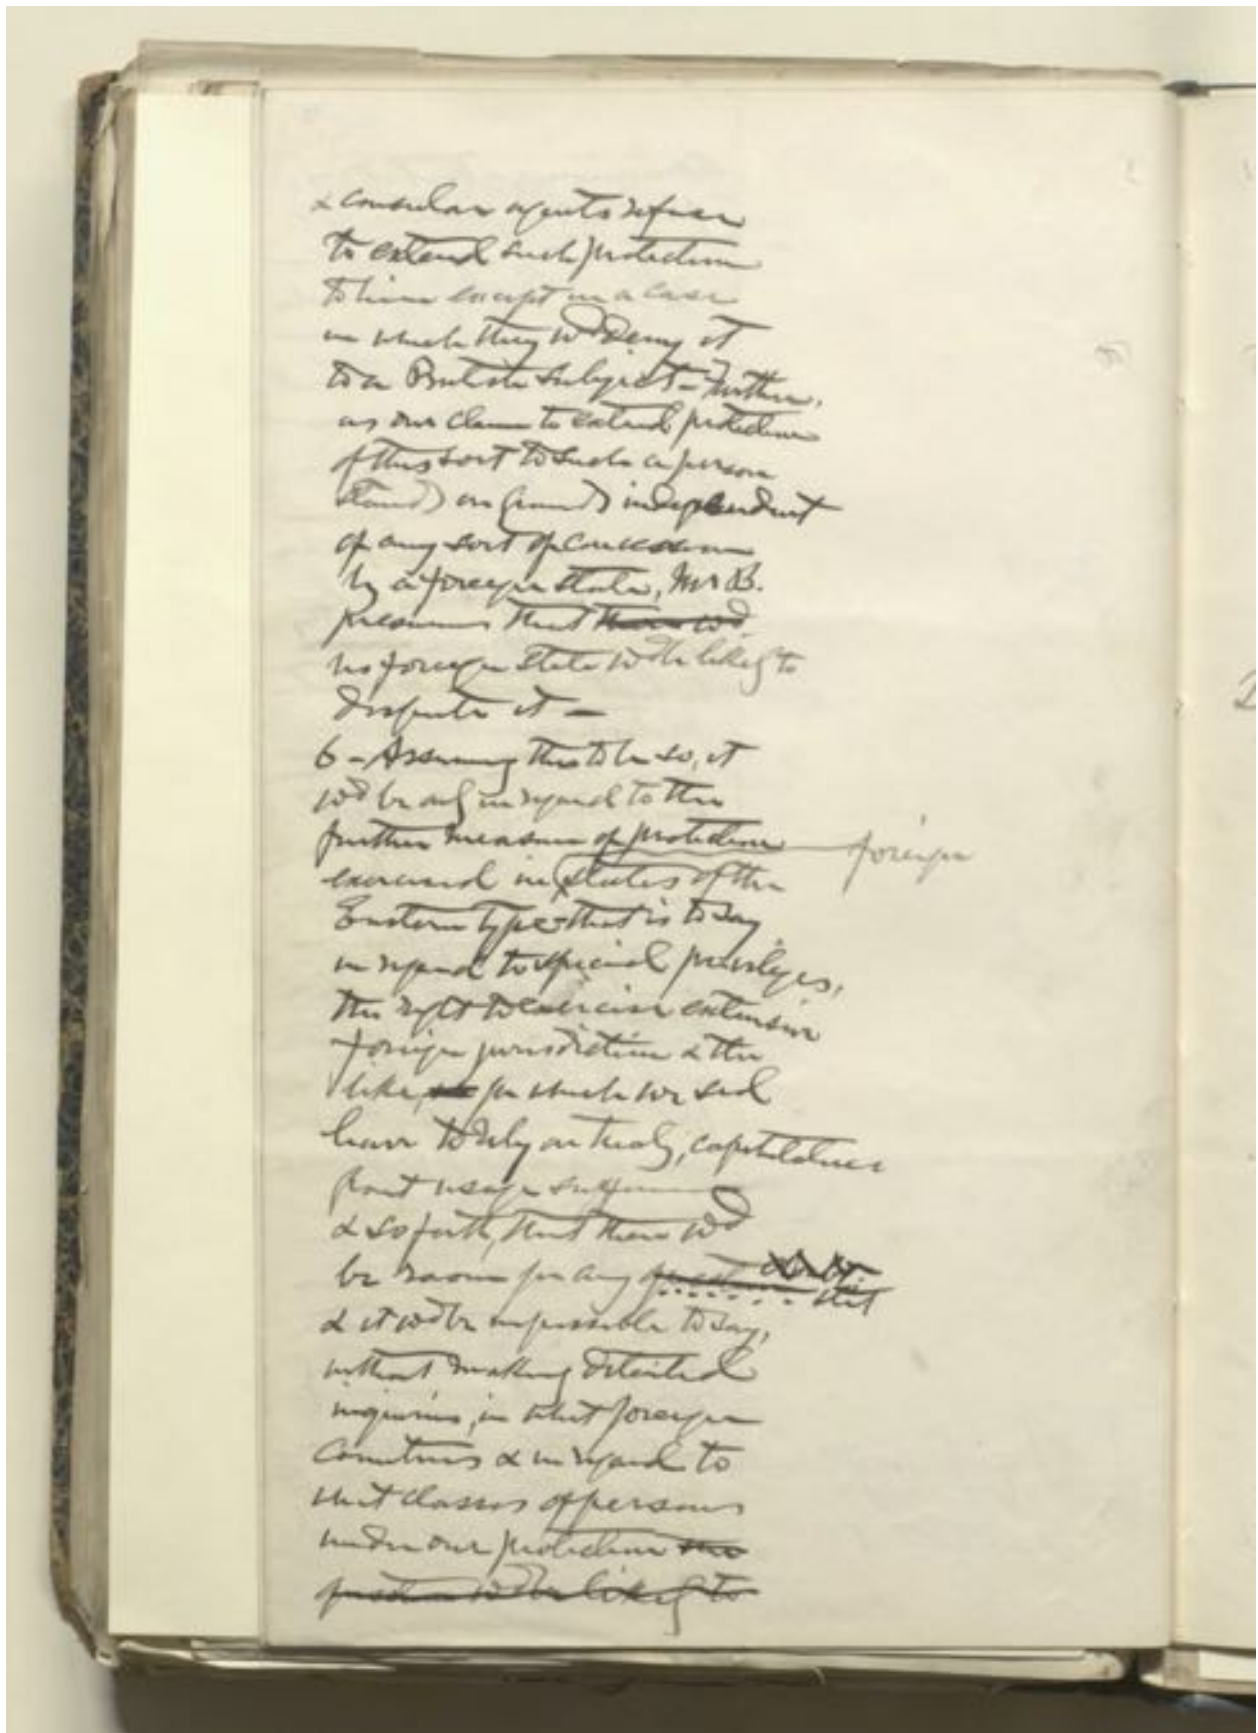 & consular agents refuse
to extend such protection
to him except in a case
in which they wd deny it
to a British subject - Further,
as our claim to extend protection
of this sort to such a person
stands on grounds independent
of any sort of concession
by a foreign state, Mr B.
presumes that there wd
no foreign state wd be likely to
dispute it -
6 - Assuming this to be so, it
wd be only in regard to the
further measure of protection
foreign
exercised in states of the
Eastern type - that is to say
in regard to special privileges,
the right to exercise extensive
foreign jurisdiction & the
like, for which we shd
have to rely on treaty, capitulations
usage sufferance
& so forth, that there wd
be room for any question doubt stet
& it wd be impossible to say,
without making detailed
inquiries, in what foreign
countries & in regard to
what classes of persons
under our protection the
question wd be likely to